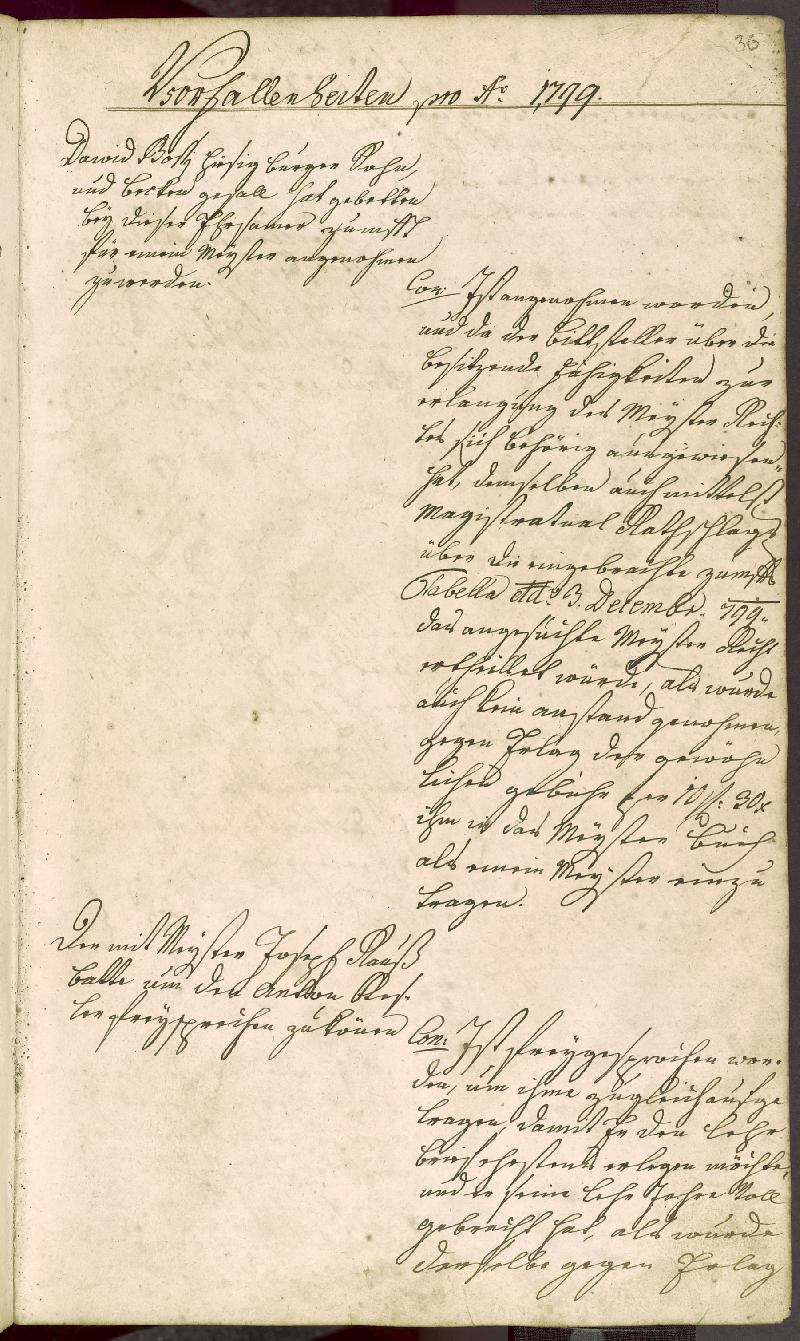 36
Vorfallenheiten pro Ao. 1799.
David Botz hiesig burger Sohn,
und becken gesell hat gebetten
bey dieser Ehrsamen zunfft
für einem Meyster angenohmen
zuwerden.
Con: Ist angenohmen worden,
und da der bittsteller über die
besitzende fähigkeiten zur
erlangung des Meyster Rech-
tes sich behörig ausgewiesen
hat, demselben auch mittelst
Magistratual Rathschlags
über die eingebrachte zunfft
Tabella dtto 3. Decembr. 799.
das angesuchte Meyster Recht
ertheillet wurde, als wurde
auch kein anstand genohmen,
gegen Erlag der gewöhn
lichen gebühr per 10 f: 30x
ihm in das Meyster buch
als einem Meyster einzu
tragen.
Der mit Meyster Joseph
batte um den Anton Res-
ler freysprechen zu könen
Con: Ist freygesprochen wor-
den, um ihme zugleich aufge
tragen, damit Er den lehr
brief ehestens erlegen möchte,
und er seine lehr Jahre Voll
gebracht hat, als wurde
derselbe gegen Erlag